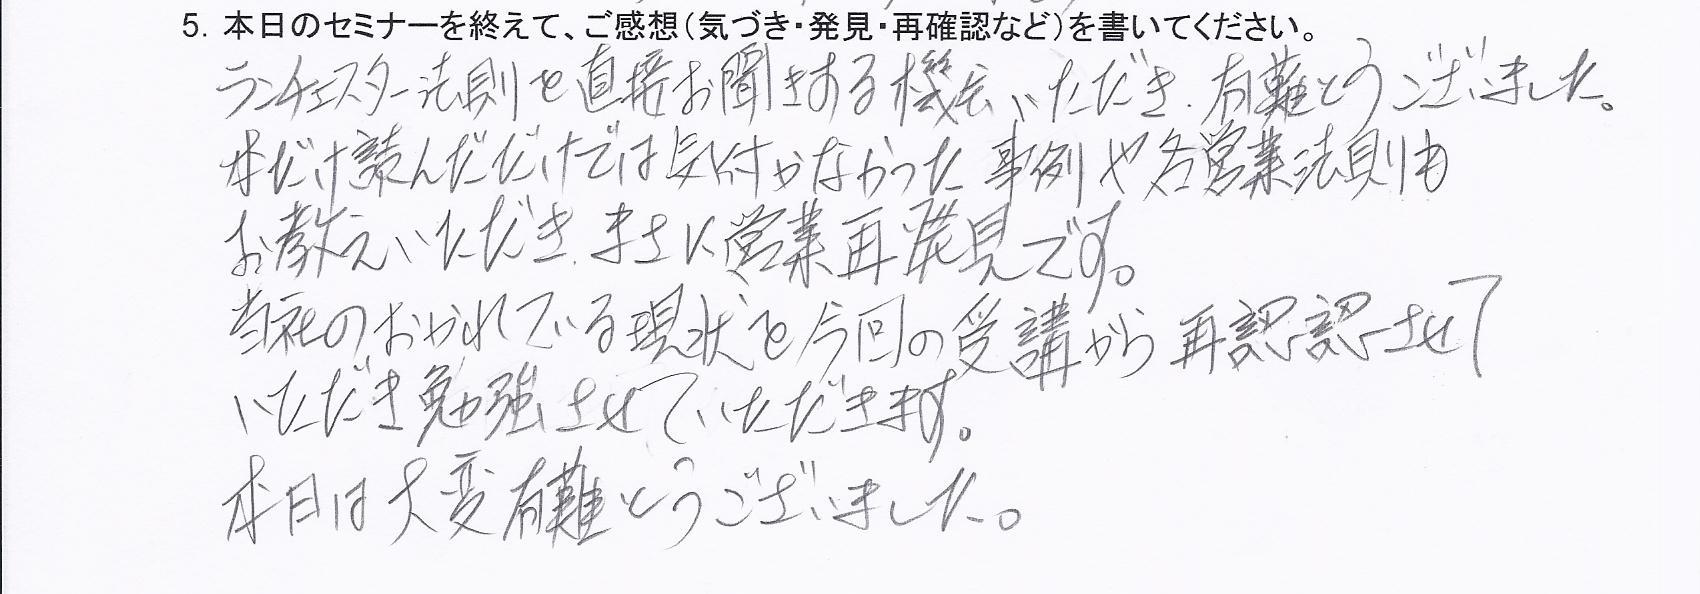 5. 本日のセミナーを終えて、ご感想(気づき・発見・再確認など)を書いてください。
ランチェスター法則を直接お聞きする機会いただき、有難とうございました。
本だけ読んだだけでは気付かなかった事例や各営業法則も
お教えいただき、まさに営業再発見です。
当社のおかれている現状を今回の受講から再認認させて
いただき勉強させていただきます。
本日は大変有難とうございました。